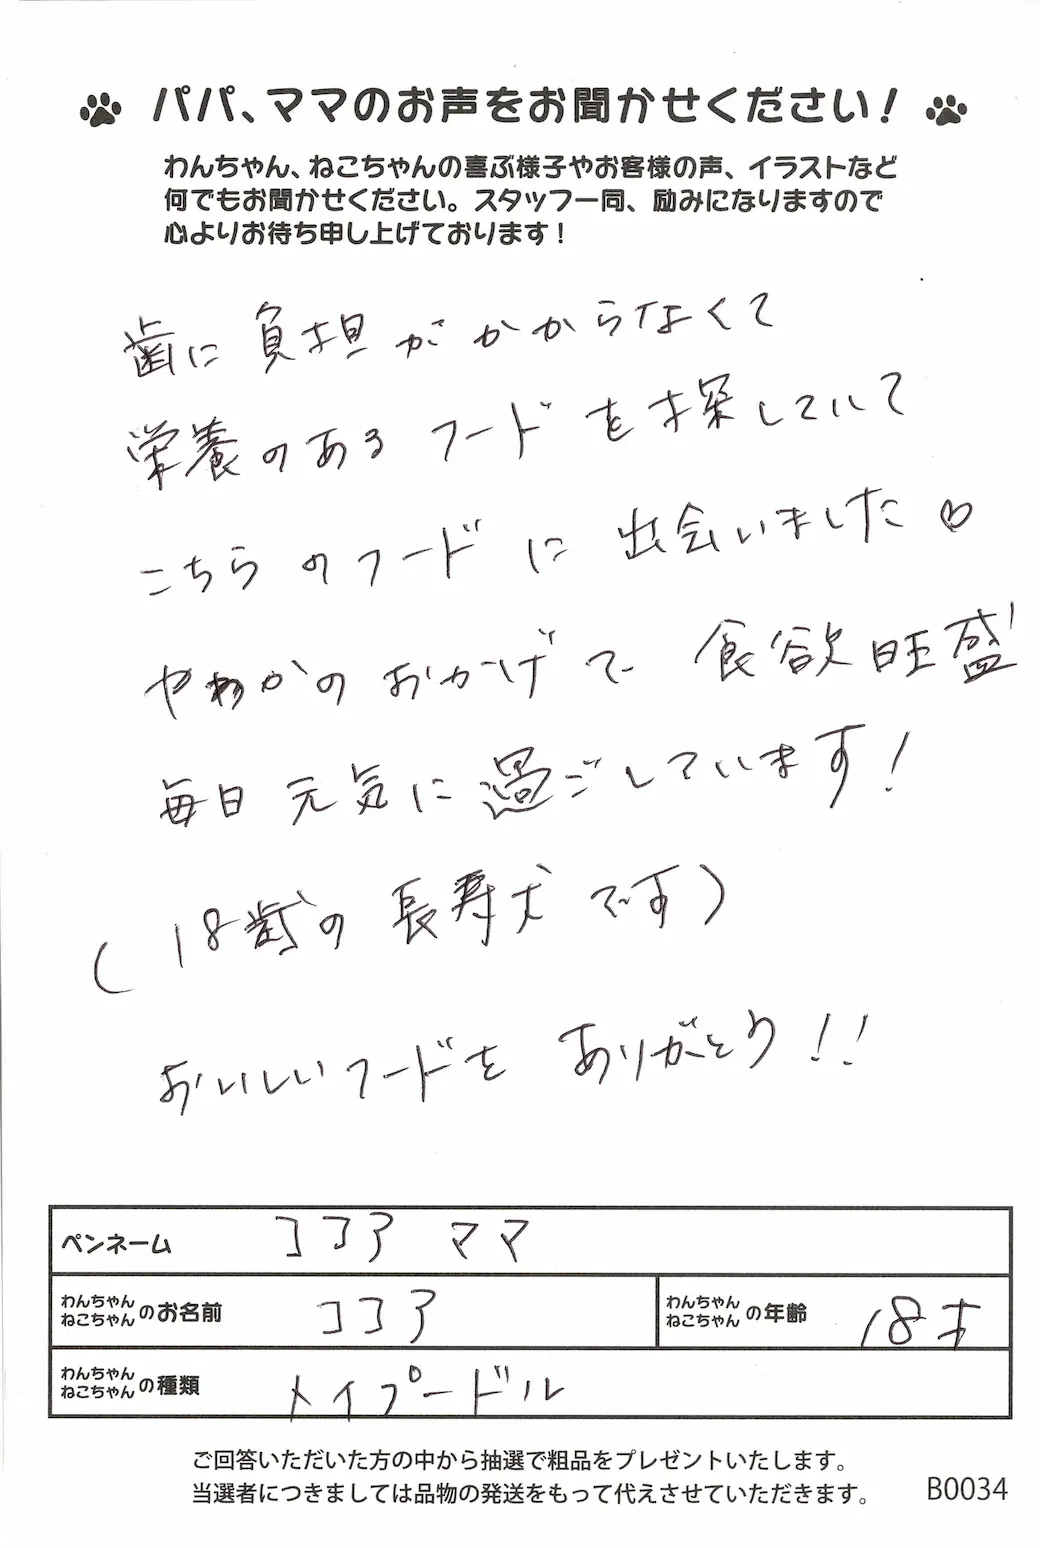 パパ、ママのお声をお聞かせください！
わんちゃん、ねこちゃんの喜ぶ様子やお客様の声、イラストなど
何でもお聞かせください。スタッフ一同、励みになりますので
心よりお待ち申し上げております！
歯に負担がかからなくて
栄養のあるフードを探していて
こちらのフードに出会いました♡
やわかのおかげで食欲旺盛
毎日元気に過ごしています！
(18歳の長寿犬です)
おいしいフードをありがとう!!
ペンネーム ココアママ
わんちゃん ねこちゃん のお名前 ココア わんちゃん ねこちゃん の年齢 18才
わんちゃん ねこちゃん の種類 トイプードル
ご回答いただいた方の中から抽選で粗品をプレゼントいたします。
当選者につきましては品物の発送をもって代えさせていただきます。 B0034